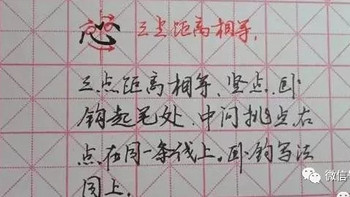 心 三点距离相等,
三点距离相等,竖点、卧
钩起笔处、中间挑点右
点在同一条线上。卧钩写法
同上。
微信号